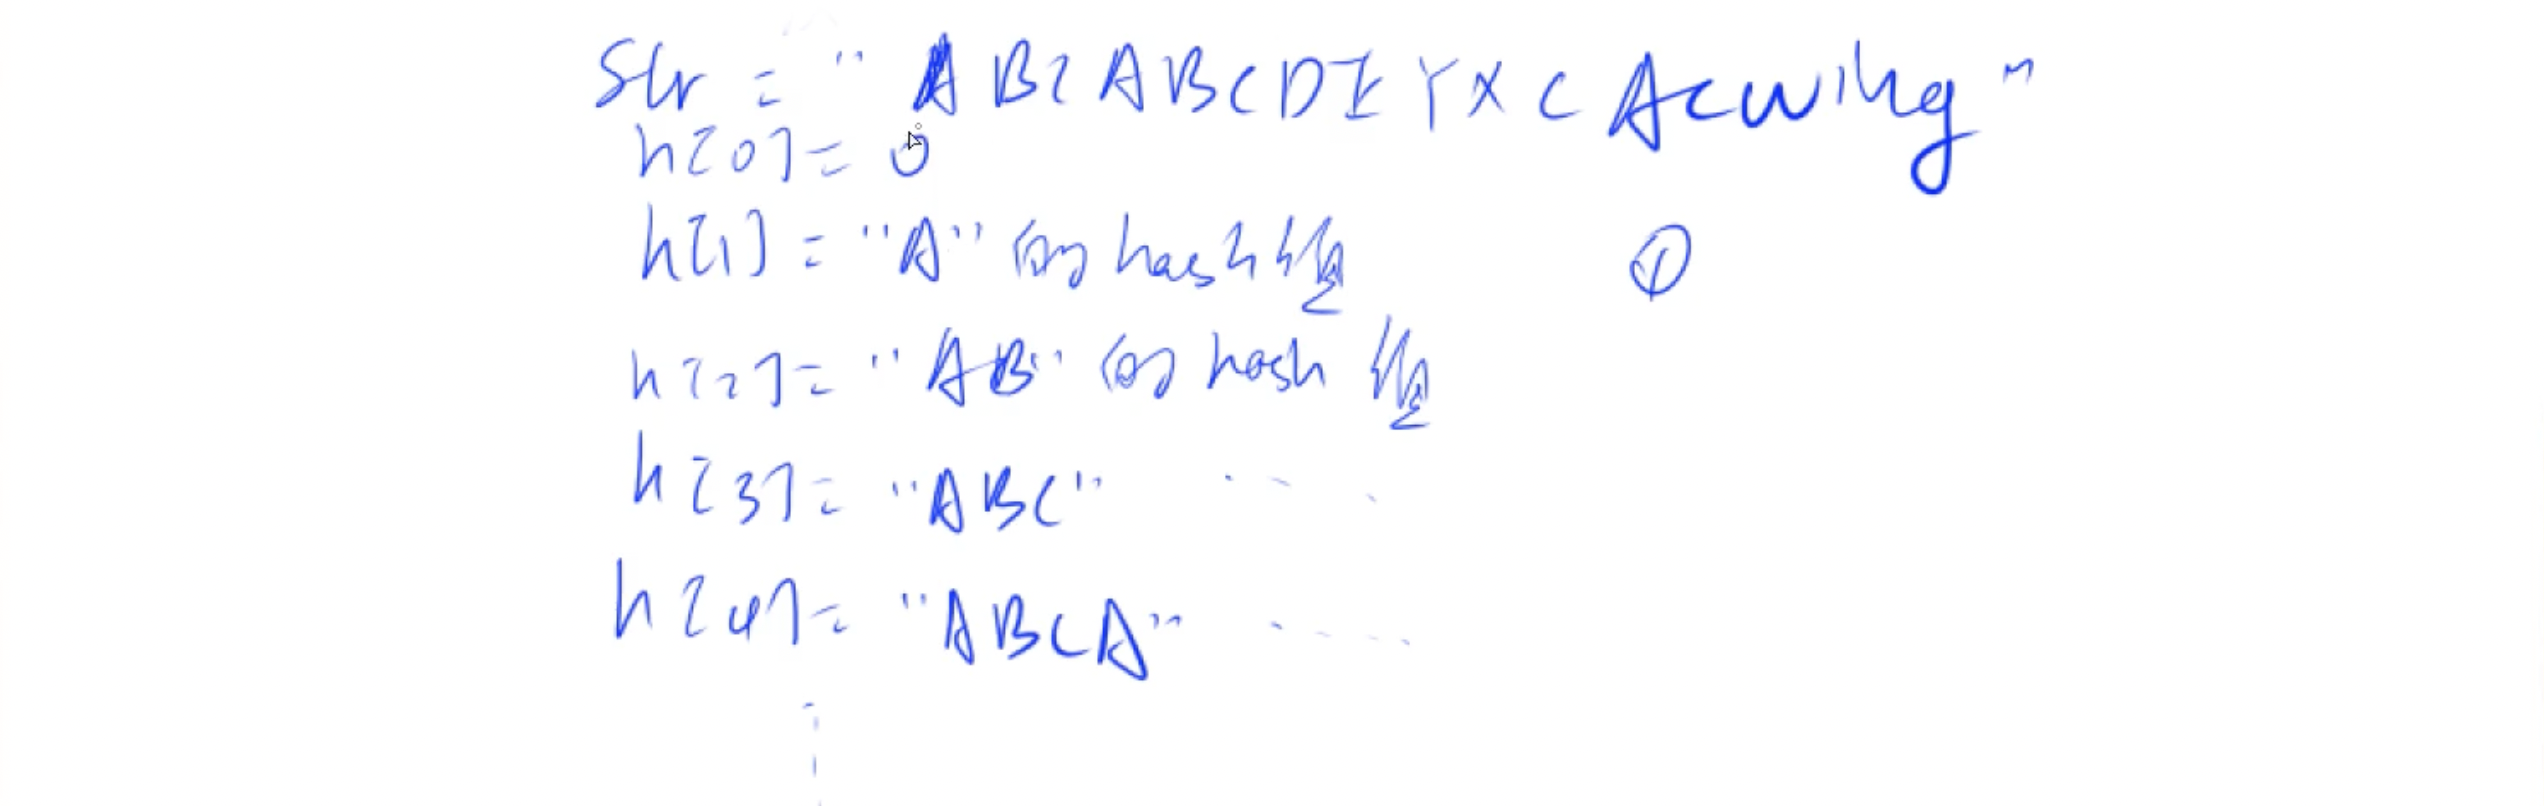 str = "ABCABCDEYXCAcwing"
h[0] = 0
h[1] = "A"的hash值
①
h[2] = "AB"的hash值
h[3] = "ABC" ....
h[4] = "ABCA" .....